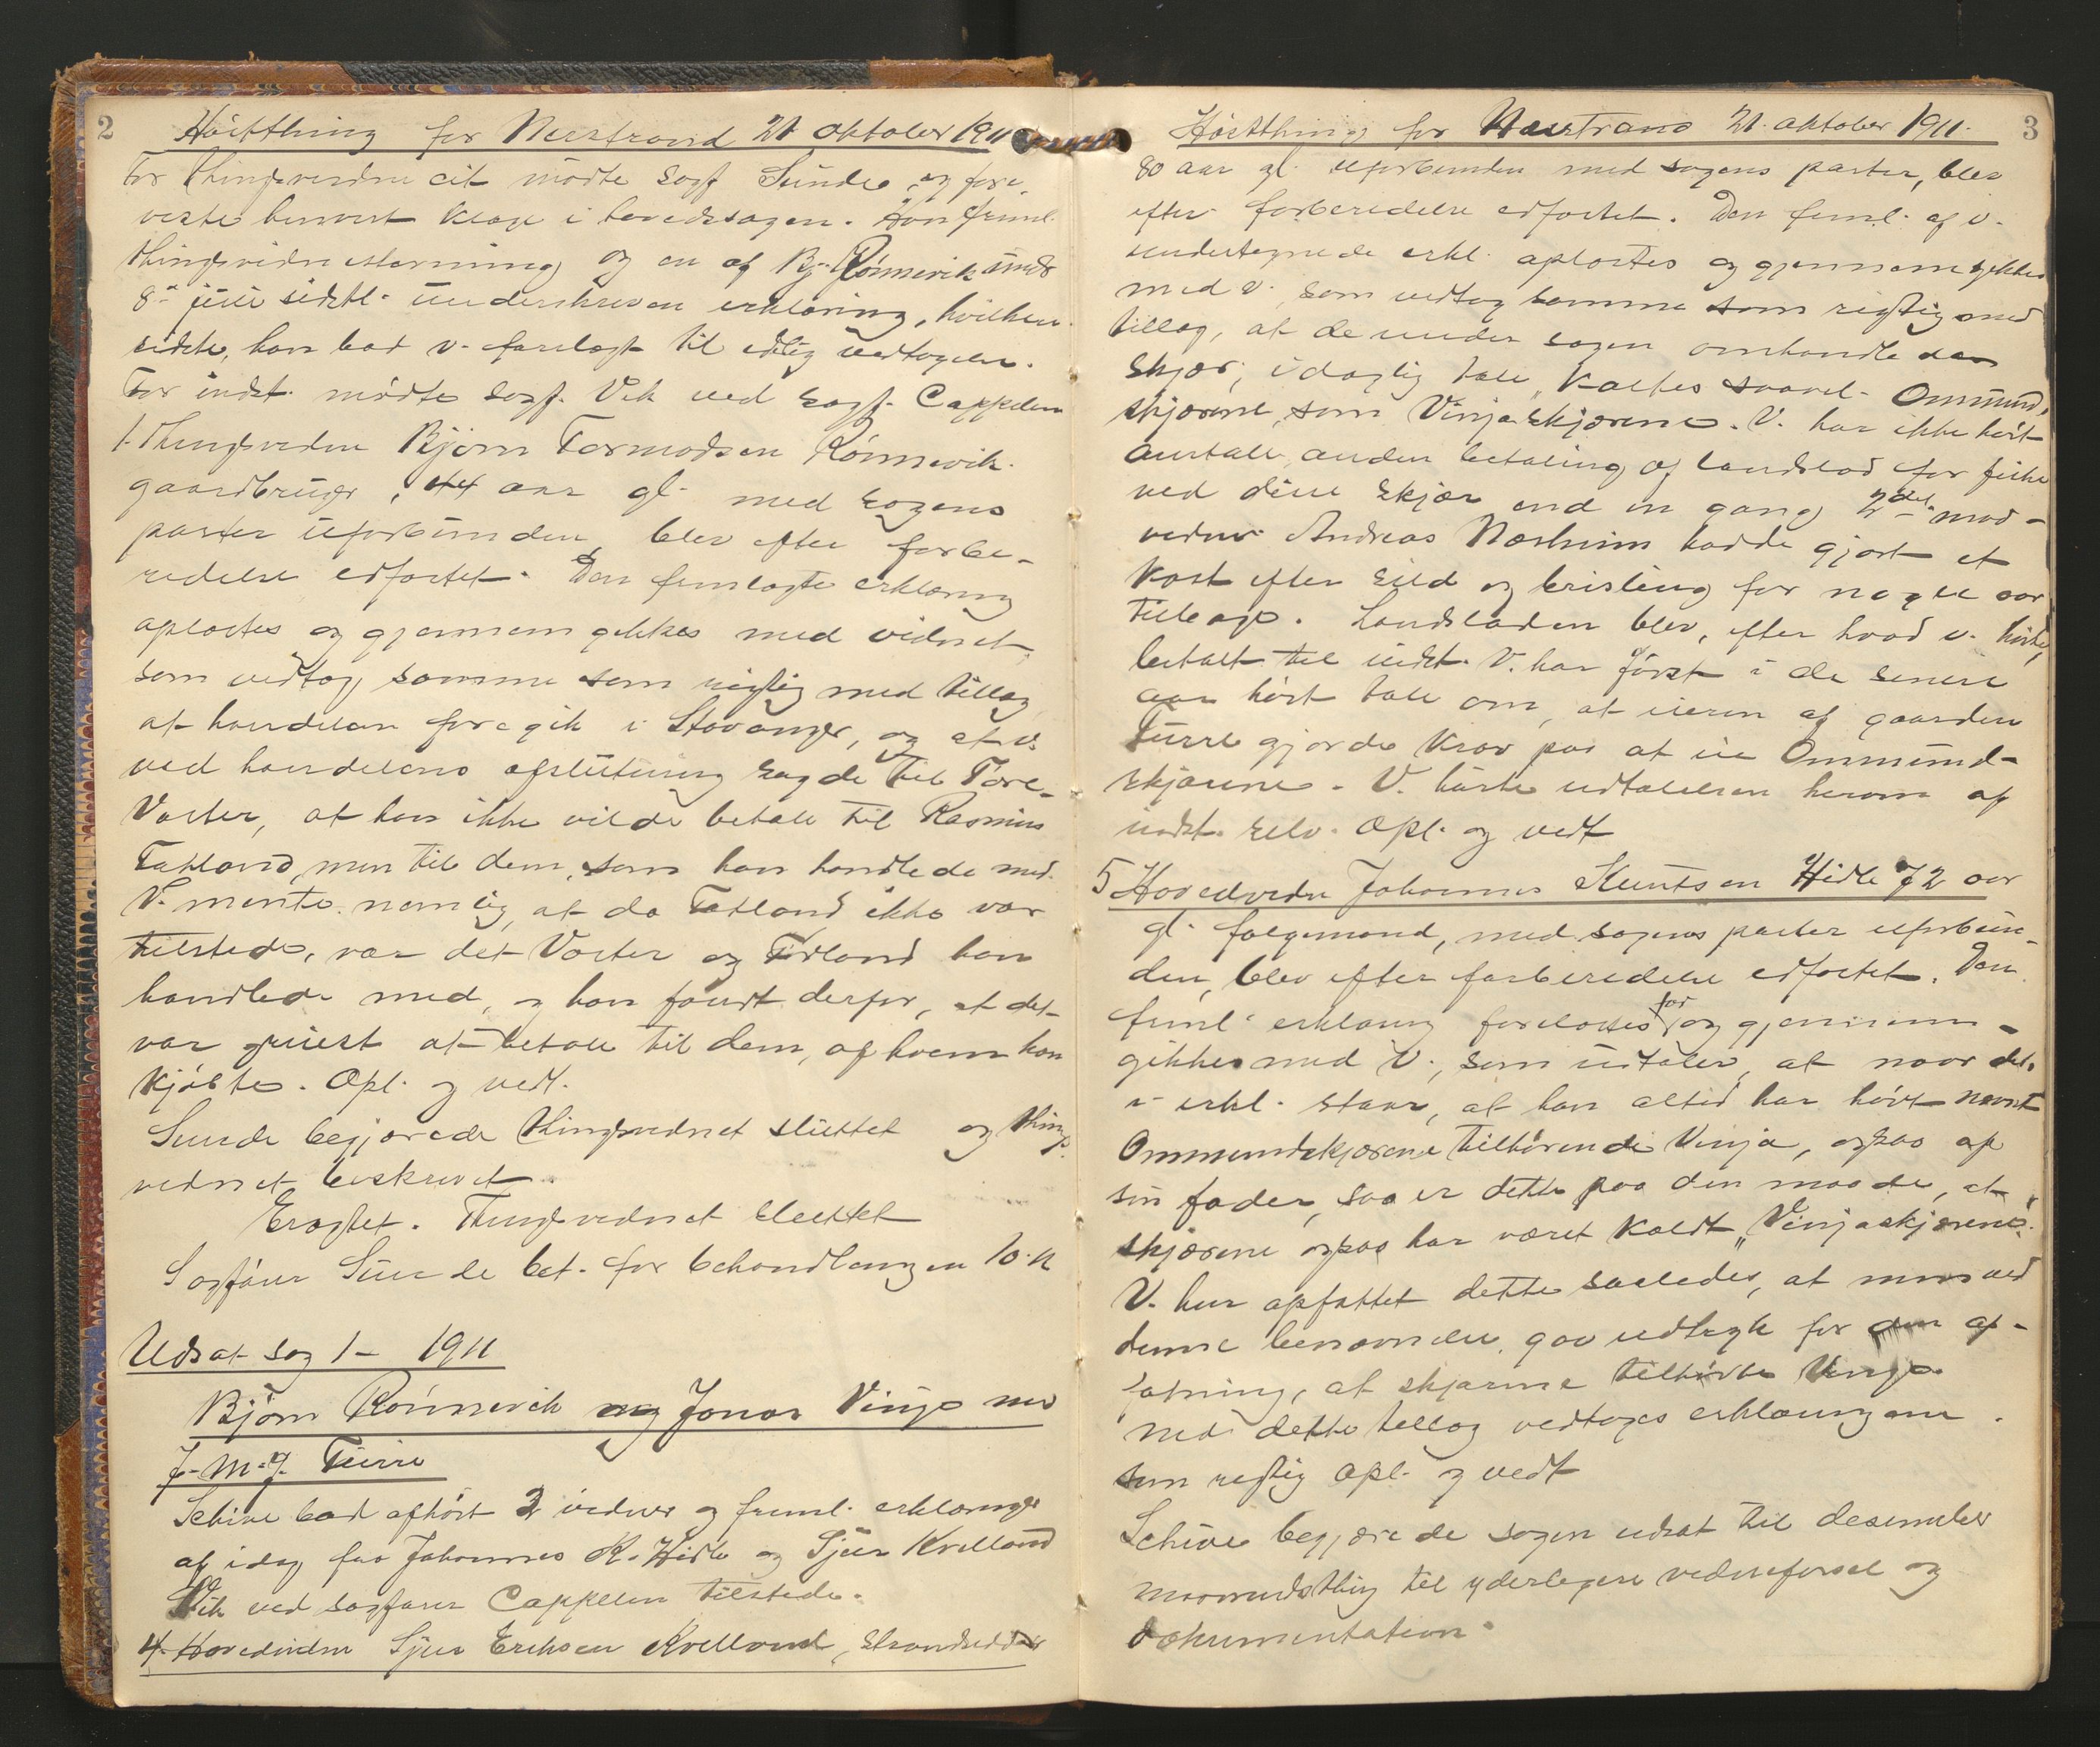 2 Høstthing for Nerstrand 21 oktober 1911
For thingsvidne cit mødte sagf Sunde og fore-
viste beviist klage i hovedsagen. Han freml.
thingsvidnestevning og en af Bj. Rönnevik under
8de juli sidstl. underskreven erklæring, hvilken
sidste han bad v. forelagt til edelig vedtagelse.
For indst. mødte sagf. Vik ved sagf. Cappelen
1. Thingsvidne Bjørn Tormodsen Rönnevik
gaardbruger, 44 aar gl. med sagens
parter uforbunden, blev efter forbe-
redelse edfæstet. Den fremlagte erklæring
oplæstes og gjennemgikkes med vidnet,
som vedtog samme som rigtig med tillæg
at handelen foregik i Stavanger, og at v.
ved handelens afslutning sagde til Tore
Vaster, at han ikke vilde betale til Rasmus
Tatland, men til dem, som han handlede med.
V. mente nemlig, at da Tatland ikke var
tilstede, var det Vaster og Tidland han
handlede med, og han fandt derfor, at det
var greiest at betale til dem, af hvem han
kjøbte. Opl. og vedt.
Sunde begjærede thingsvidnet sluttet og things-
vidnet beskrevet.
Eragtet. Thingsvidnet sluttet
Sagfører Sunde bet. for behandlingen 10.-
Udsat sag 1 - 1911
Bjørn Rönnevik og Jonas Vinje mod
J. M. J. Tuirre
Schive bad afhørt 2 vidner og freml. erklæringer
af idag fra Johannes K. Hidle og Sjur Kvelland
Vik ved sagfører Cappelen tilstede.
4. Hovedvidne Sjur Eriksen Kvelland, strandsidder
Høstthing for Nerstrand 21. oktober 1911. 3
80 aar gl. uforbunden med sagens parter, blev
efter forberedelse edfæstet. Den freml. af v.
undertegnede erkl. oplæstes og gjennemgikkes
med v. som vedtog samme som rigtig med
tillæg, at de under sagen omhandlede
skjær, i daglig tale kaltes saavel Ommund-
skjærene, som Vinjaskjærene. V. har ikke hørt
omtale anden betaling af landslod for fiske
ved disse skjær end en gang 2det mod-
vidne Andreas Næsheim hadde gjort et
kast efter sild og brisling for nogle aar
tilbage. Landsloden blev, efter hvad v. hørte,
betalt til indst. V. har først i de senere
aar hørt tale om, at eieren af gaarden
Tuirre gjorde krav paa at eie Ommund-
skjærene. V. hørte udtalelsen herom af
indst. selv. Opl. og vedt
5 Hovedvidne Johannes Knutsen Hidle 72 aar
gl. følgemand, med sagens parter uforbun-
den, blev efter forberedelse edfæstet. Den
freml. erklæring forelæstes for og gjennem-
gikkes med v., som udtaler, at naar det
i erkl. staar, at han altid har hørt nævnt
Ommundskjærene tilhørende Vinja, ogsaa af
sin fader, saa er dette paa den maade, at
skjærene ogsaa har været kaldt „Vinjaskjærene".
V. har opfattet dette saaledes, at man ved
denne benævnelse gav udtryk for den op-
fatning, at skjærene tilhørte Vinja.
Med dette tillæg vedtages erklæringen
som rigtig Opl. og vedt
Schive begjærede sagen udsat til desember
maanedsthing til yderligere vidneførsel og
dokumentation.